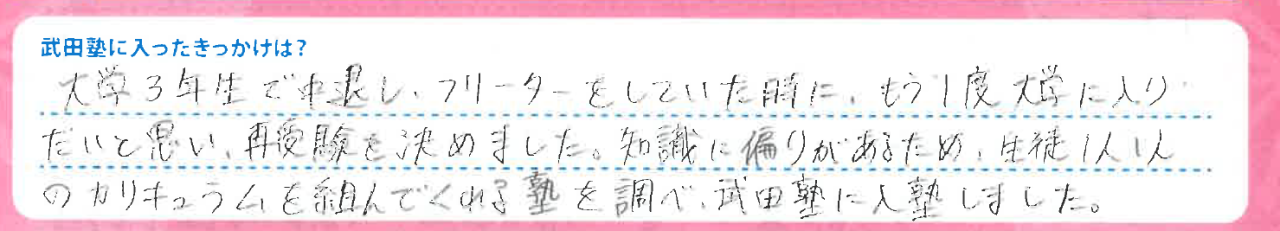 武田塾に入ったきっかけは?
大学3年生で中退し、フリーターをしていた時に、もう1度大学に入り
たいと思い、再受験を決めました。知識に偏りがあるため、生徒1人1人
のカリキュラムを組んでくれる塾を調べ、武田塾に入塾しました。